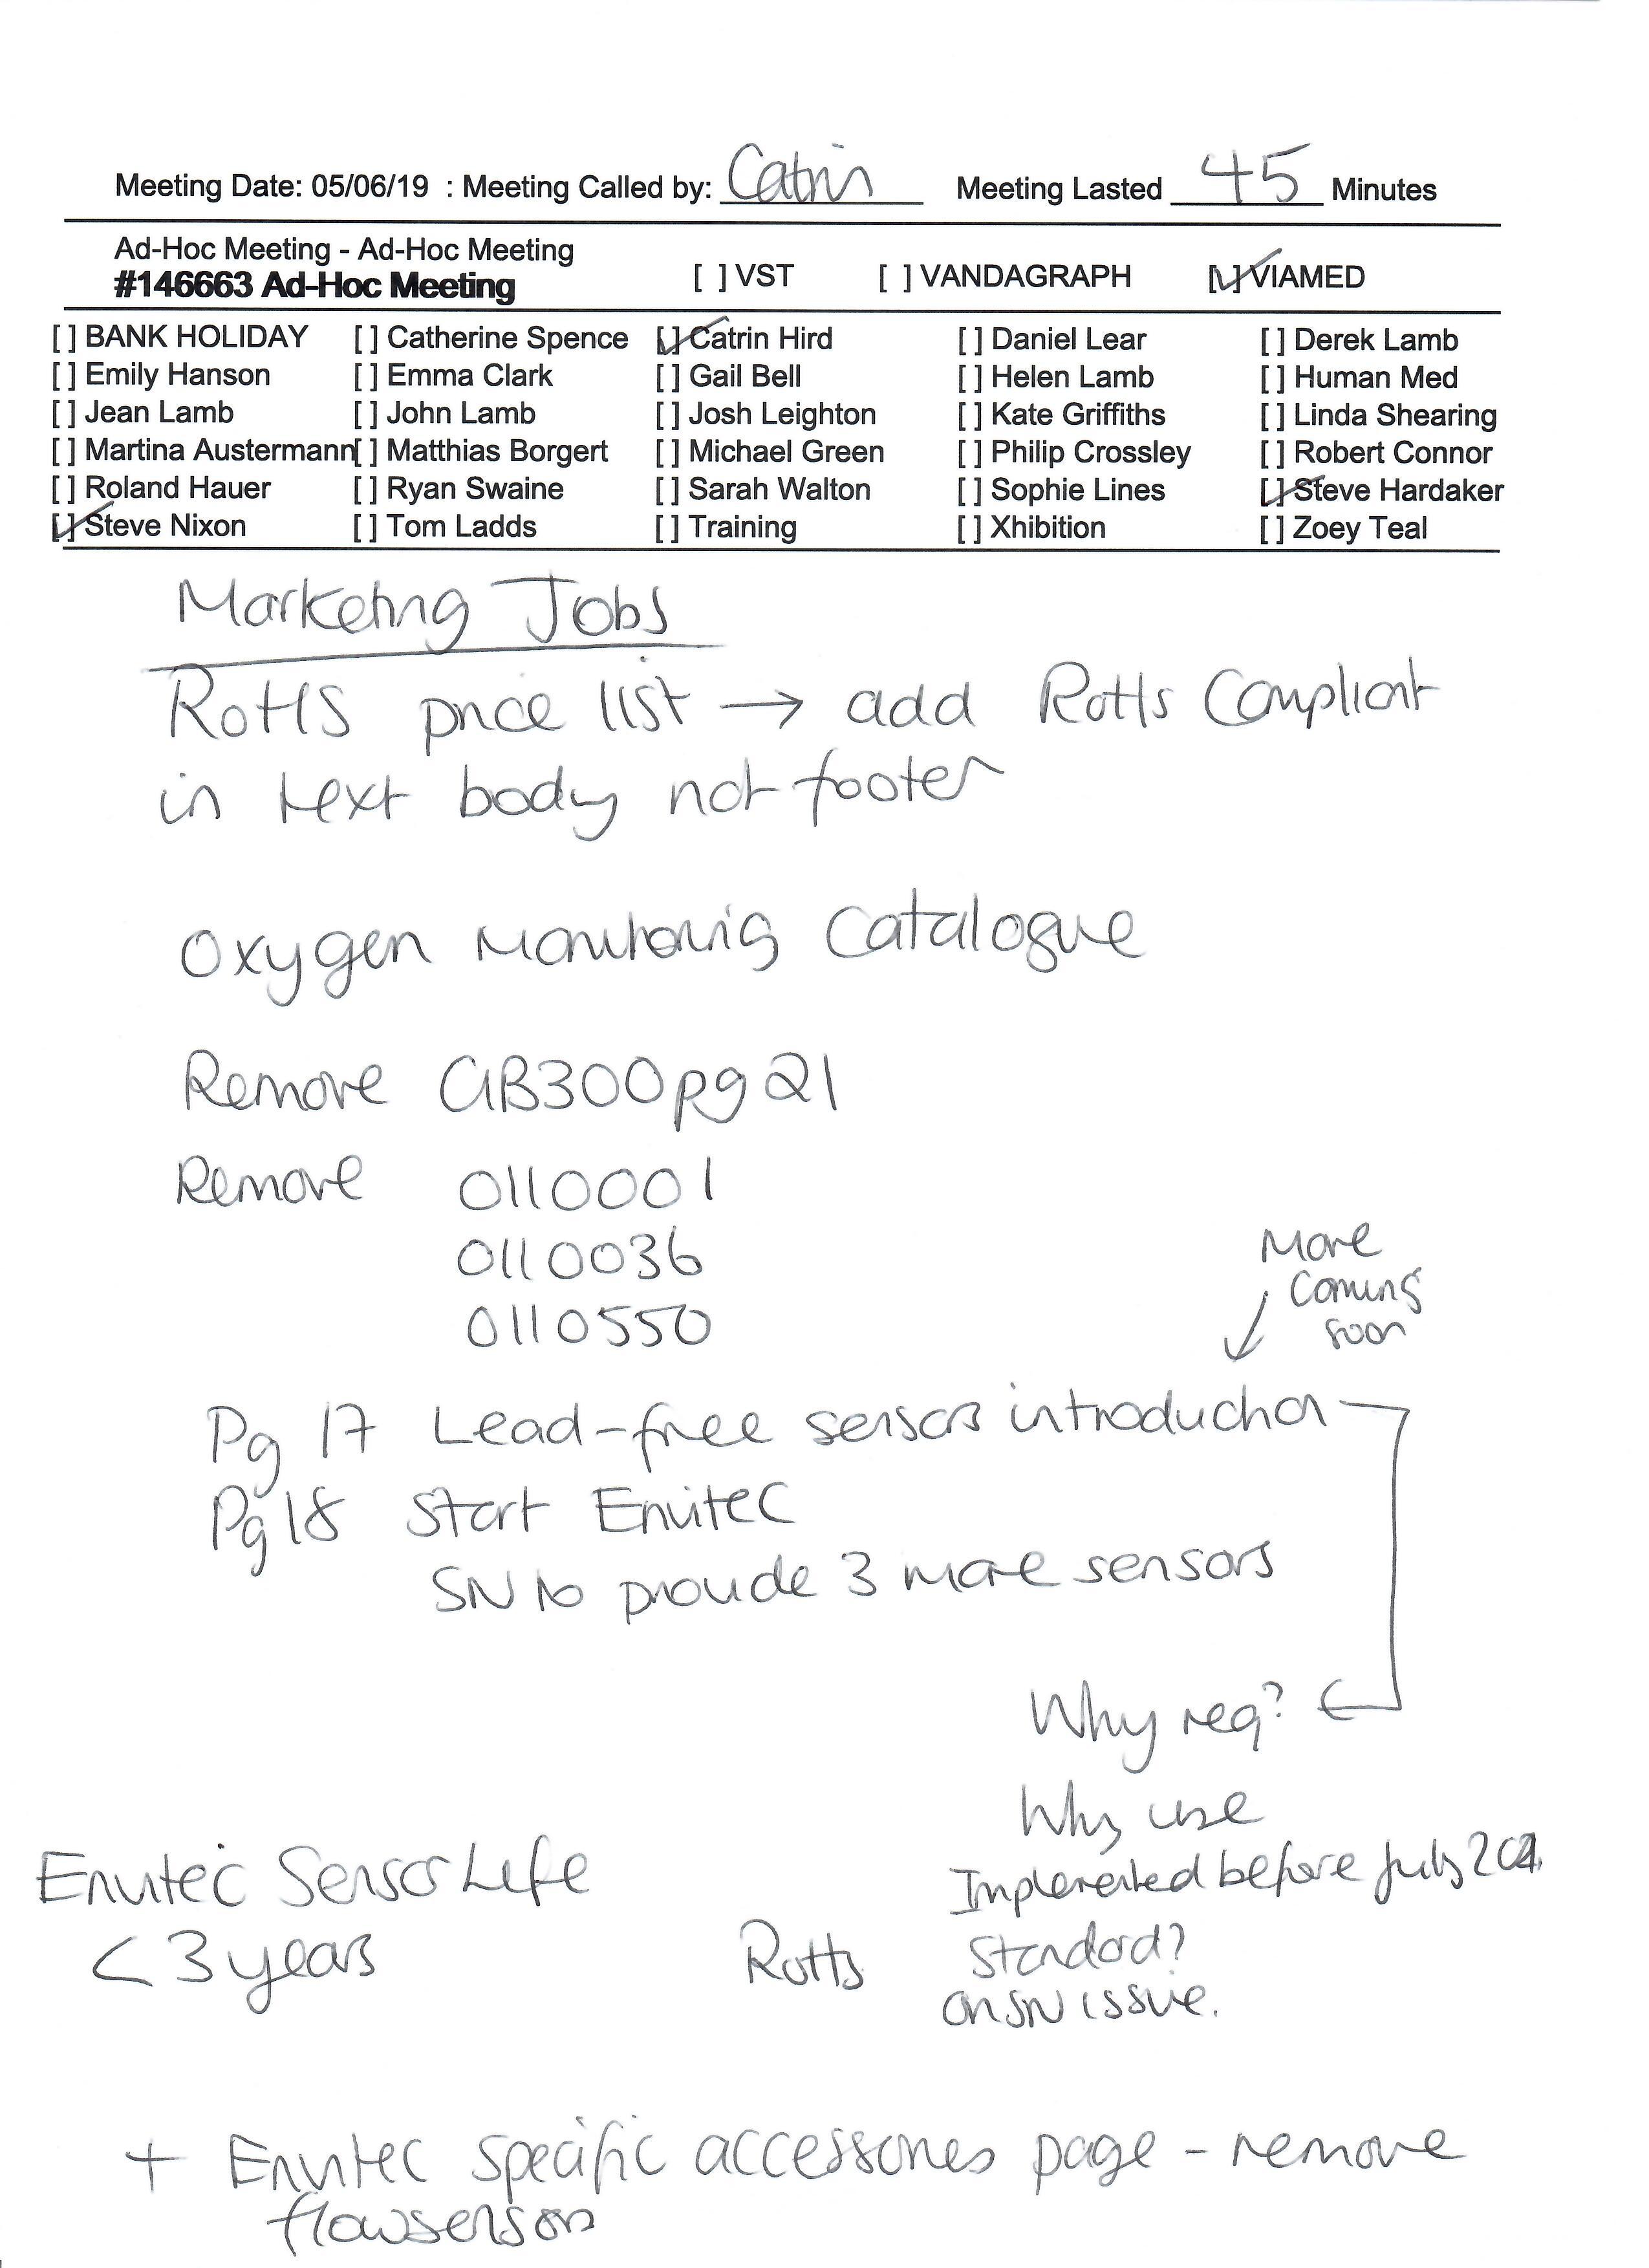 Meeting Date: 05/06/19 : Meeting Called by: Catrin Meeting Lasted 45 Minutes
Ad-Hoc Meeting - Ad-Hoc Meeting
#146663 Ad-Hoc Meeting [ ] VST [ ] VANDAGRAPH [✓] VIAMED
[ ] BANK HOLIDAY [ ] Catherine Spence [✓] Catrin Hird [ ] Daniel Lear [ ] Derek Lamb
[ ] Emily Hanson [ ] Emma Clark [ ] Gail Bell [ ] Helen Lamb [ ] Human Med
[ ] Jean Lamb [ ] John Lamb [ ] Josh Leighton [ ] Kate Griffiths [ ] Linda Shearing
[ ] Martina Austermann [ ] Matthias Borgert [ ] Michael Green [ ] Philip Crossley [ ] Robert Connor
[ ] Roland Hauer [ ] Ryan Swaine [ ] Sarah Walton [ ] Sophie Lines [✓] Steve Hardaker
[✓] Steve Nixon [ ] Tom Ladds [ ] Training [ ] Xhibition [ ] Zoey Teal
Marketing Jobs
RoHS price list → add RoHs Compliant
in text body not footer
Oxygen Monitoring Catalogue
Remove GB300 pg 21
Remove 0110001
0110036
0110550
More
coming
soon
Pg 17 Lead-free sensors introduction
Pg 18 Start Envitec
SN to provide 3 more sensors
Why req?
Why use
Implemented before July
Envitec Sensor Life
< 3 years
RoHs Standard?
on SN issue.
+ Envitec specific accessories page - remove
flowsensors